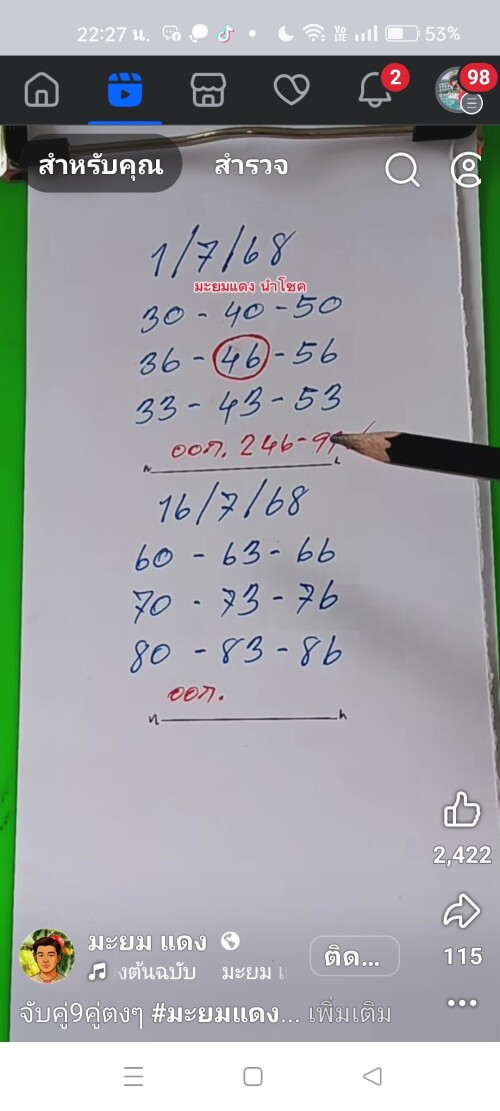 22:27 น.
53%
2
98
สำหรับคุณ
สำรวจ
1/7/68
มะยมแดง นำโชค
30 - 40 - 50
36 - 46 - 56
33 - 43 - 53
ออก. 246-9
16/7/68
60 - 63 - 66
70 - 73 - 76
80 - 83 - 86
ออก.
น h
2,422
115
มะยม แดง
งต้นฉบับ มะยม
ติด...
จับคู่9คู่ตงๆ #มะยมแดง... เพิ่มเติม